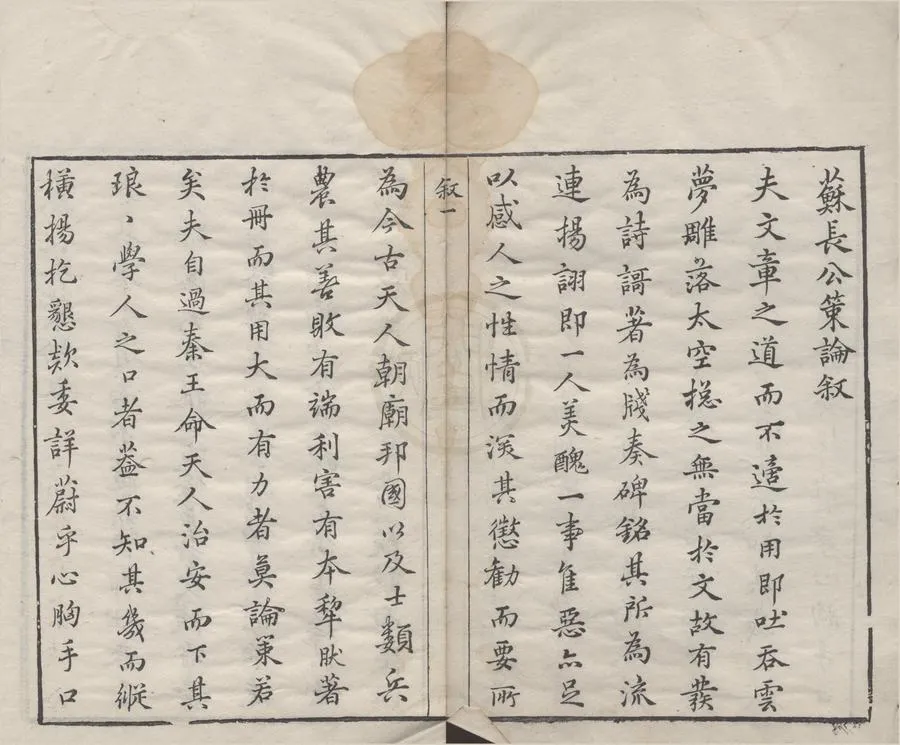 蘇長公策論叙
夫文章之道而不適於用即吐吞雲
夢雕落太空摠之無當於文故有發
為詩謌著為牋奏碑銘其所為流
連揚詡即一人美醜一事隹惡亦足
以感人之性情而深其懲勸而要所
叙一
為今古天人朝廟邦國以及士類兵
農其善敗有端利害有本犂肰著
於冊而其用大而有力者莫論策若
矣夫自過秦王命天人治安而下其
琅、學人之口者葢不知其幾而縱
橫揚扢懇欵委詳蔚乎心胸手口